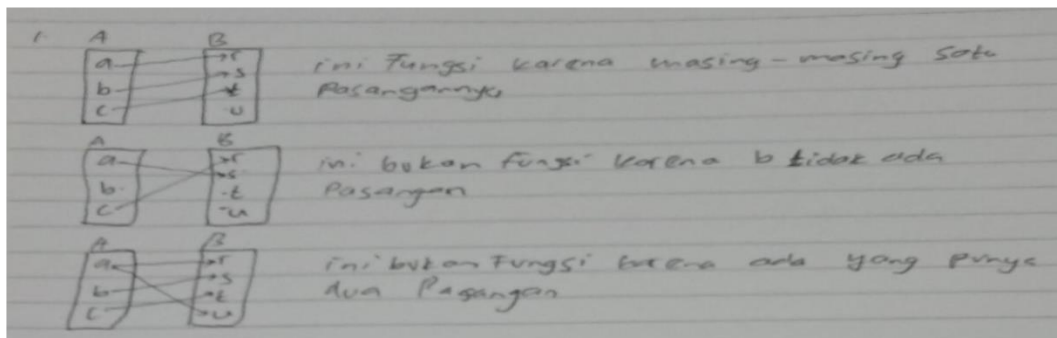 1. A B
a r
b s
c t
u
ini Fungsi karena masing-masing satu
Pasangannya
A B
a r
b s
c t
u
ini bukan Fungsi karena b tidak ada
Pasangan
A B
a r
b s
c t
u
ini bukan Fungsi karena ada yang punya
dua Pasangan